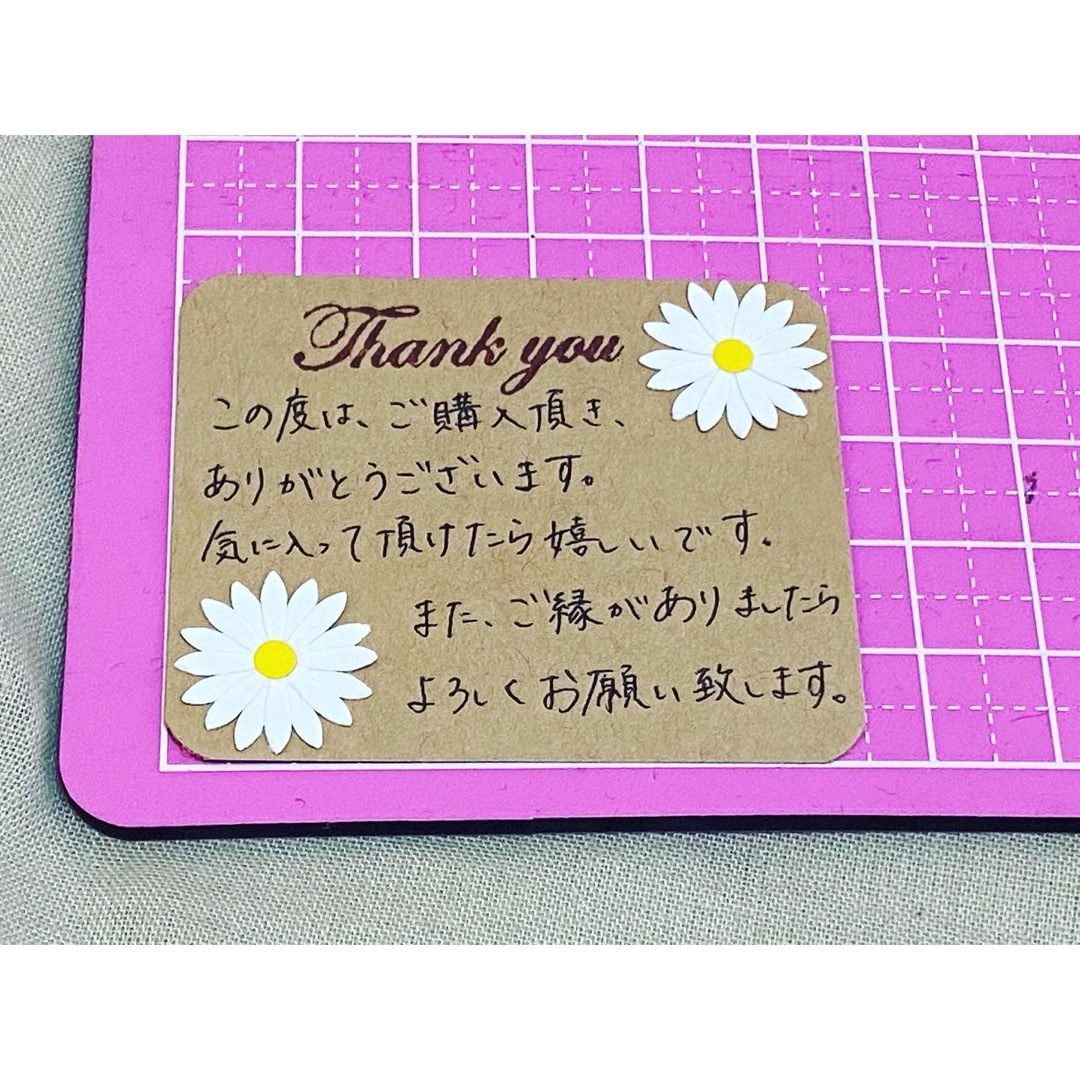 Thank you
この度は、ご購入頂き、
ありがとうございます。
気に入って頂けたら嬉しいです。
また、ご縁がありましたら
よろしくお願い致します。